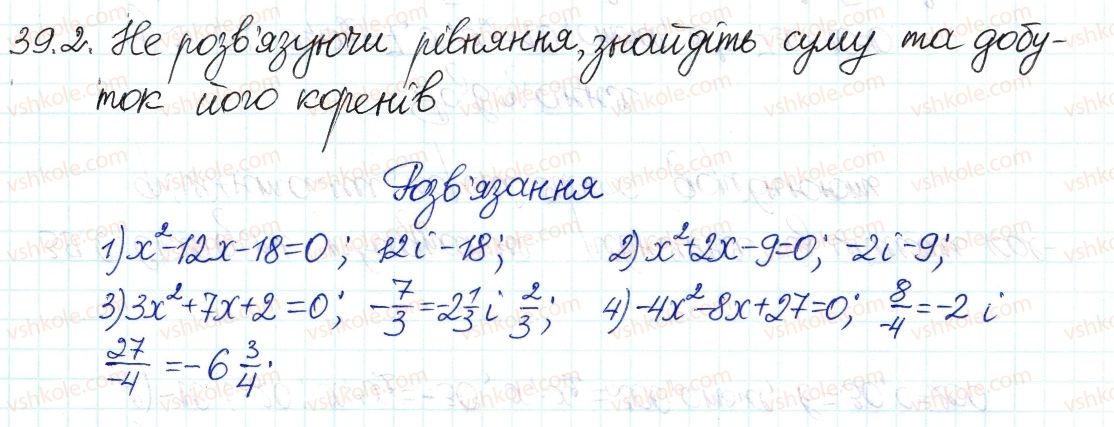 39.2. Не розв'язуючи рівняння, знайдіть суму та добу-
ток його коренів
Розв'язання
1) x²-12x-18=0; 12 і -18; 2) x²+2x-9=0; -2 і -9;
3) 3x²+7x+2=0; -7/3=-2 1/3 і 2/3; 4) -4x²-8x+27=0; 8/-4=-2 і
27/-4=-6 3/4.